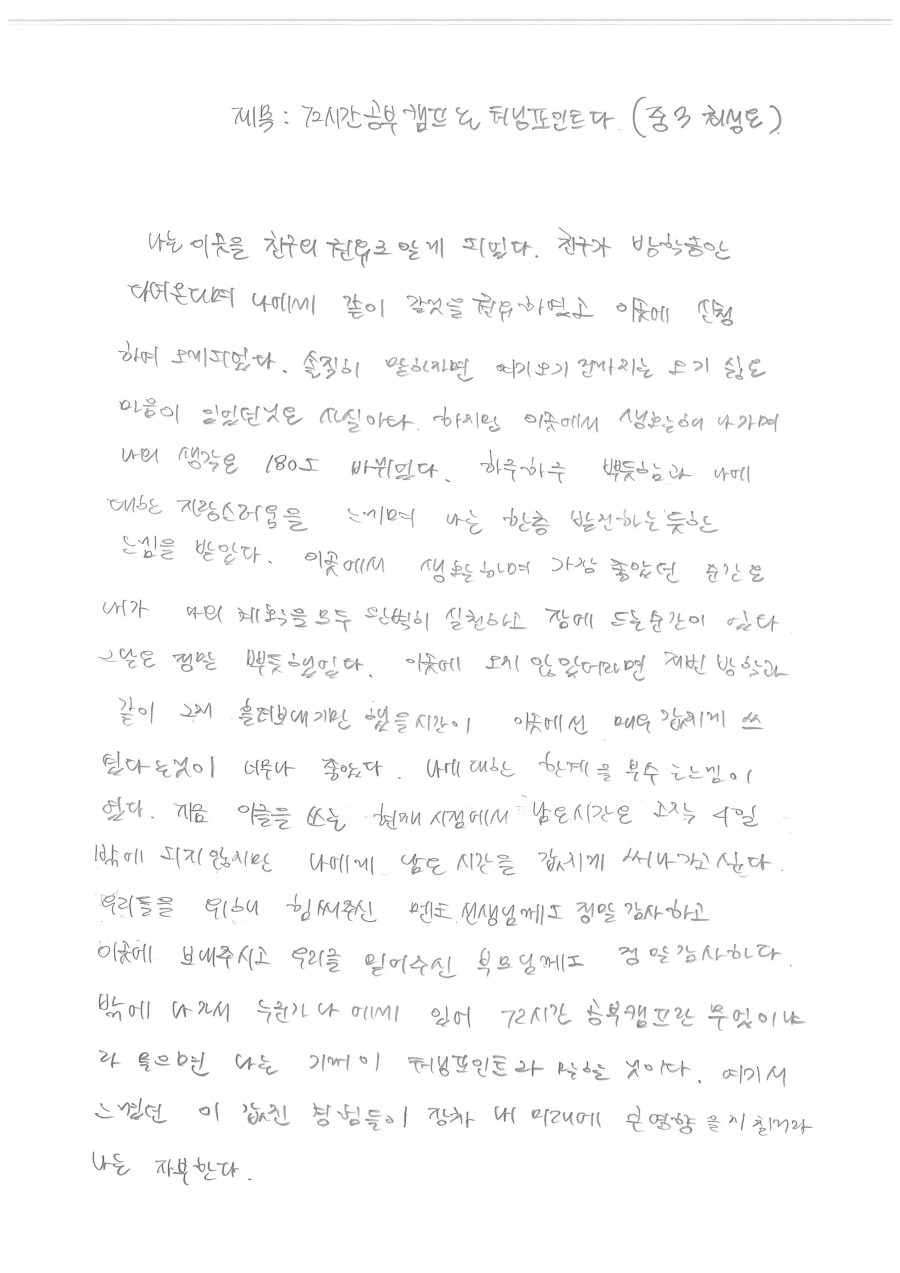 제목 : 72시간 공부 캠프는 터닝포인트다 (중3 최성호)
나는 이곳을 친구의 권유로 알게 되었다. 친구가 방학동안
다녀온다며 나에게 같이 갈것을 권유하였고 이곳에 신청
하여 오게되었다. 솔직히 말하자면 여기오기 전까지는 오기 싫은
마음이 있었던것은 사실이다. 하지만 이곳에서 생활해 나가며
나의 생각은 180도 바뀌었다. 하루하루 뿌듯함과 나에
대한 자랑스러움을 느끼며 나는 한층 발전하는 듯한
느낌을 받았다. 이곳에서 생활하며 가장 좋았던 순간은
내가 나의 계획을 모두 완벽히 실천하고 잠에 드는 순간이 있다
그날은 정말 뿌듯했었다. 이곳에 오지 않았더라면 저번 방학과
같이 그저 흘려보내기만 했을시간이 이곳에선 매우 값지게 쓰
였다는것이 너무나 좋았다. 나에 대한 한계를 부수는느낌이
였다. 지금 이글을 쓰는 현재 시점에서 남은시간은 고작 4일
밖에 되지 않지만 나에게 남은 시간을 값지게 써나가고 싶다.
우리들을 위해 힘써주신 멘토 선생님께도 정말 감사하고
이곳에 보내주시고 우리를 믿어주신 부모님께도 정말감사하다.
밖에 나가서 누군가 나에게 있어 72시간 공부캠프란 무엇이냐
라 물으면 나는 기꺼이 터닝포인트라 말할 것이다. 여기서
느꼈던 이 값진 경험들이 장차 내 미래에 큰영향을 끼칠거라
나는 자부한다.